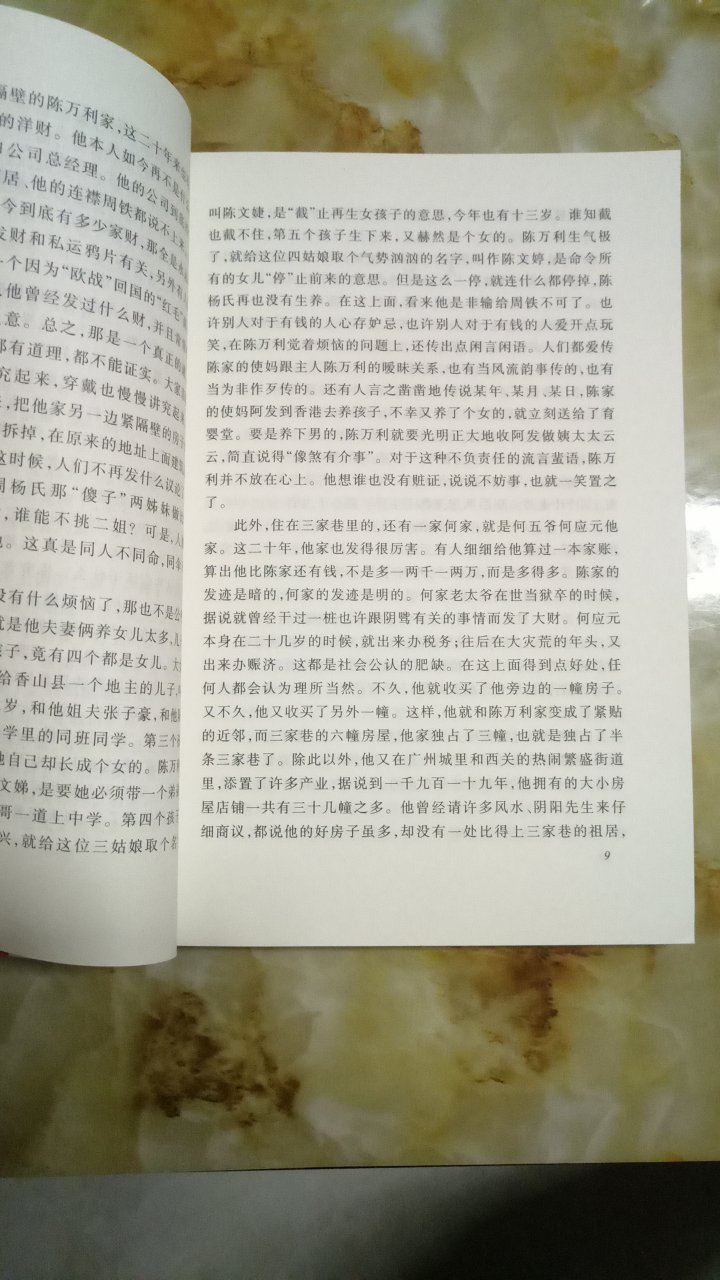 隔壁的陈万利家,这二十年来
的洋财。他本人如今再不是
公司总经理。他的公司到底
居、他的连襟周铁都说不上来
今到底有多少家财,那全是
发财和私运鸦片有关,另外有
一个因为“欧战”回国的“红毛”
,他曾经发过什么财,并且常
意。总之,那是一个真正的
都有道理,都不能证实。大家
究起来,穿戴也慢慢讲究起来
,把他家另一边紧隔壁的房子
拆掉,在原来的地址上面建筑
这时候,人们不再发什么议论
周杨氏那“傻子”两姊妹做
,谁能不挑二姐?可是,人
。这真是同人不同命,同伞
没有什么烦恼了,那也不是公
就是他夫妻俩养女儿太多,儿
孩子,竟有四个都是女儿。大
给香山县一个地主的儿子,
岁,和他姐夫张子豪,和他
学里的同班同学。第三个孩
她自己却长成个女的。陈万利
文娣,是要她必须带一个弟弟
哥一道上中学。第四个孩子
兴,就给这位三姑娘取个名
叫陈文婕,是“截”止再生女孩子的意思,今年也有十三岁。谁知截
也截不住,第五个孩子生下来,又赫然是个女的。陈万利生气极
了,就给这位四姑娘取个气势汹汹的名字,叫作陈文婷,是命令所
有的女儿“停”止前来的意思。但是这么一停,就连什么都停掉,陈
杨氏再也没有生养。在这上面,看来他是非输给周铁不可了。也
许别人对于有钱的人心存妒忌,也许别人对于有钱的人爱开点玩
笑,在陈万利觉着烦恼的问题上,还传出点闲言闲语。人们都爱传
陈家的使妈跟主人陈万利的暧昧关系,也有当风流韵事传的,也有
当为非作歹传的。还有人言之凿凿地传说某年、某月、某日,陈家
的使妈阿发到香港去养孩子,不幸又养了个女的,就立刻送给了育
婴堂。要是养下男的,陈万利就要光明正大地收阿发做姨太太云
云,简直说得“像煞有介事”。对于这种不负责任的流言蜚语,陈万
利并不放在心上。他想谁也没有赃证,说说不妨事,也就一笑置之
了。
此外,住在三家巷里的,还有一家何家,就是何五爷何应元他
家。这二十年,他家也发得很厉害。有人细细给他算过一本家账,
算出他比陈家还有钱,不是多一两千一两万,而是多得多。陈家的
发迹是暗的,何家的发迹是明的。何家老太爷在世当狱卒的时候,
据说就曾经干过一桩也许跟阴骘有关的事情而发了大财。何应元
本身在二十几岁的时候,就出来办税务;往后在大灾荒的年头,又
出来办赈济。这都是社会公认的肥缺。在这上面得到点好处,任
何人都会认为理所当然。不久,他就收买了他旁边的一幢房子。
又不久,他又收买了另外一幢。这样,他就和陈万利家变成了紧贴
的近邻,而三家巷的六幢房屋,他家独占了三幢,也就是独占了半
条三家巷了。除此以外,他又在广州城里和西关的热闹繁盛街道
里,添置了许多产业,据说到一千九百一十九年,他拥有的大小房
屋店铺一共有三十几幢之多。他曾经请许多风水、阴阳先生来仔
细商议,都说他的好房子虽多,却没有一处比得上三家巷的祖居,
9